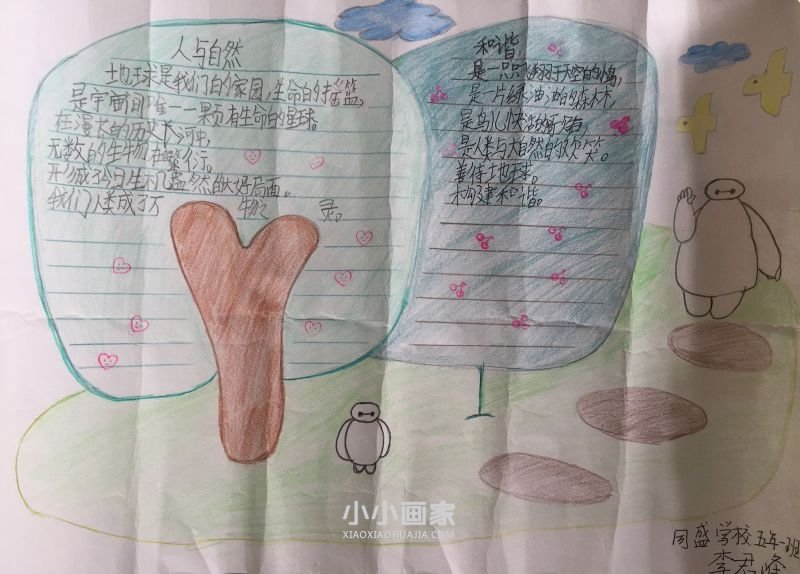 人与自然
地球是我们的家园,生命的摇篮,
是宇宙间唯一一颗有生命的星球。
在漫长的历史长河中,
无数的生物在繁衍。
形成今日生机盎然的大好局面。
我们人类成了万物之灵。
和谐,
是一只只翱翔于天空的小鸟,
是一片绿油油的森林,
是鸟儿快活的
是人类与大自然的欢笑。
善待地球。
构建和谐。
小小画家
XIAOXIAOHUAJIA.COM
同盛学校五年一班
李君峰